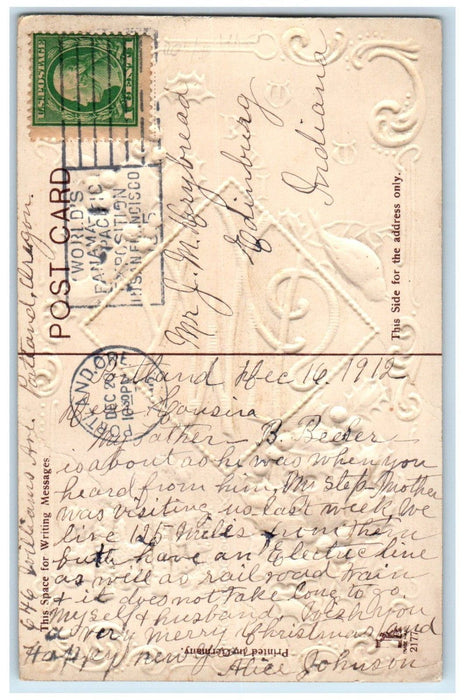 POST CARD
U.S. POSTAGE
1 CENT 1
WORLD'S
PANAMA
PACIFIC
EXPOSITION
IN SAN FRANCISCO
1915
Mr J. M. Crybread
Edinburg
Indiana
This Side for the address only.
PORTLAND ORE.
DEC 2
10-30 PM
This Space for Writing Messages
Portland Dec 16, 1912
Dear Cousin
My Father - B. Beeler
is about as he was when you
heard from him. My Step-Mother
was visiting us last week. We
live 125 Miles from them
but have an Electric line
as well as railroad train
& it does not take long to go.
Myself & husband, Wish you
a very merry Christmas and
Happy new
Alice Johnson
646 Williams Ave. Portland, Oregon.
Printed in Germany
2177